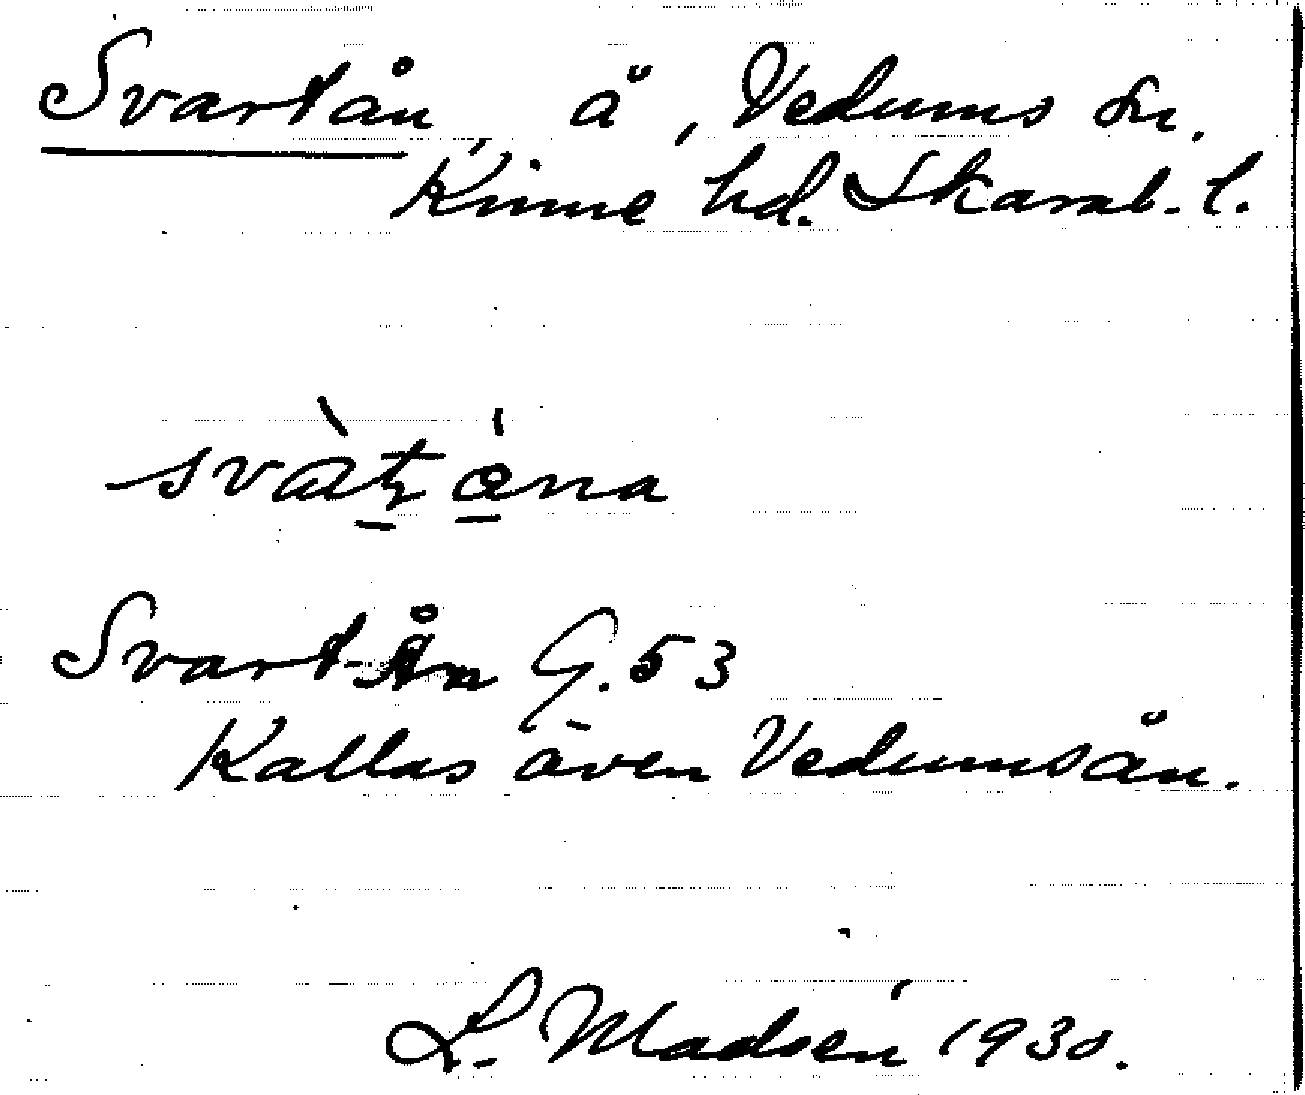 Svartån, å, Vedums sn.
Kinne hd. Skarab. l.
Svart-Ån G. 53
Kallas även Vedumsån.
L. Madsén 1930.